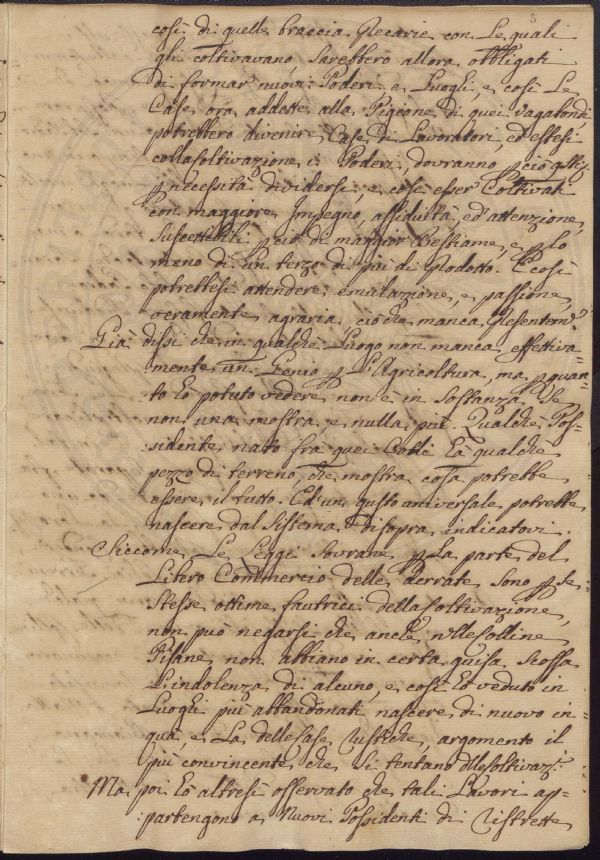 5
così di quelle braccia Precarie con le quali
gli coltivavano, Sarebbero allora obbligati
di formar nuovi Poderi, e Luoghi, e così le
Case ora addette alla Pigione di quei vagabondi
potrebbero divenire Case di Lavoratori, ed estesi
colla Coltivazione i Poderi, dovranno p ciò
p necessità dividersi, e così esser Coltivati
con maggiore Impegno, assiduità, ed attenzione,
Suscettibili p ciò di maggior Bestiame, e p lo
meno di un terzo di più di Prodotto. E così
potrebbesi attendere emulazione, e passione
veramente agraria, ciò che manca Presentem.e
Già dissi che in qualche Luogo non manca effettiva-
mente un Genio p l'Agricoltura, ma p quan-
to hò potuto vedere non è in Sostanza Se
non una mostra, e nulla più. Qualche Pos-
sidente nato frà quei Colli hà qualche
pezzo di terreno, che mostra cosa potrebbe
essere il tutto. Ed un gusto universale potrebbe
nascere dal Sistema disopra indicatovi.
Siccome Le Leggi Sovrane p La parte del
Libero Commercio delle derrate sono p se
stesse ottime fautrici della Coltivazione,
non può negarsi che anche nelle Colline
Pisane non abbiano in certa guisa scossa
L'indolenza di alcuno, e così hò veduto in
Luoghi più abbandonati nascere di nuovo in
quà, e La delle Case rustiche, argomento il
più convincente che si tentano delle Coltivaz.i
Ma poi hò altresì osservato che tali Lavori ap-
partengono a Nuovi Possidenti di ristrette